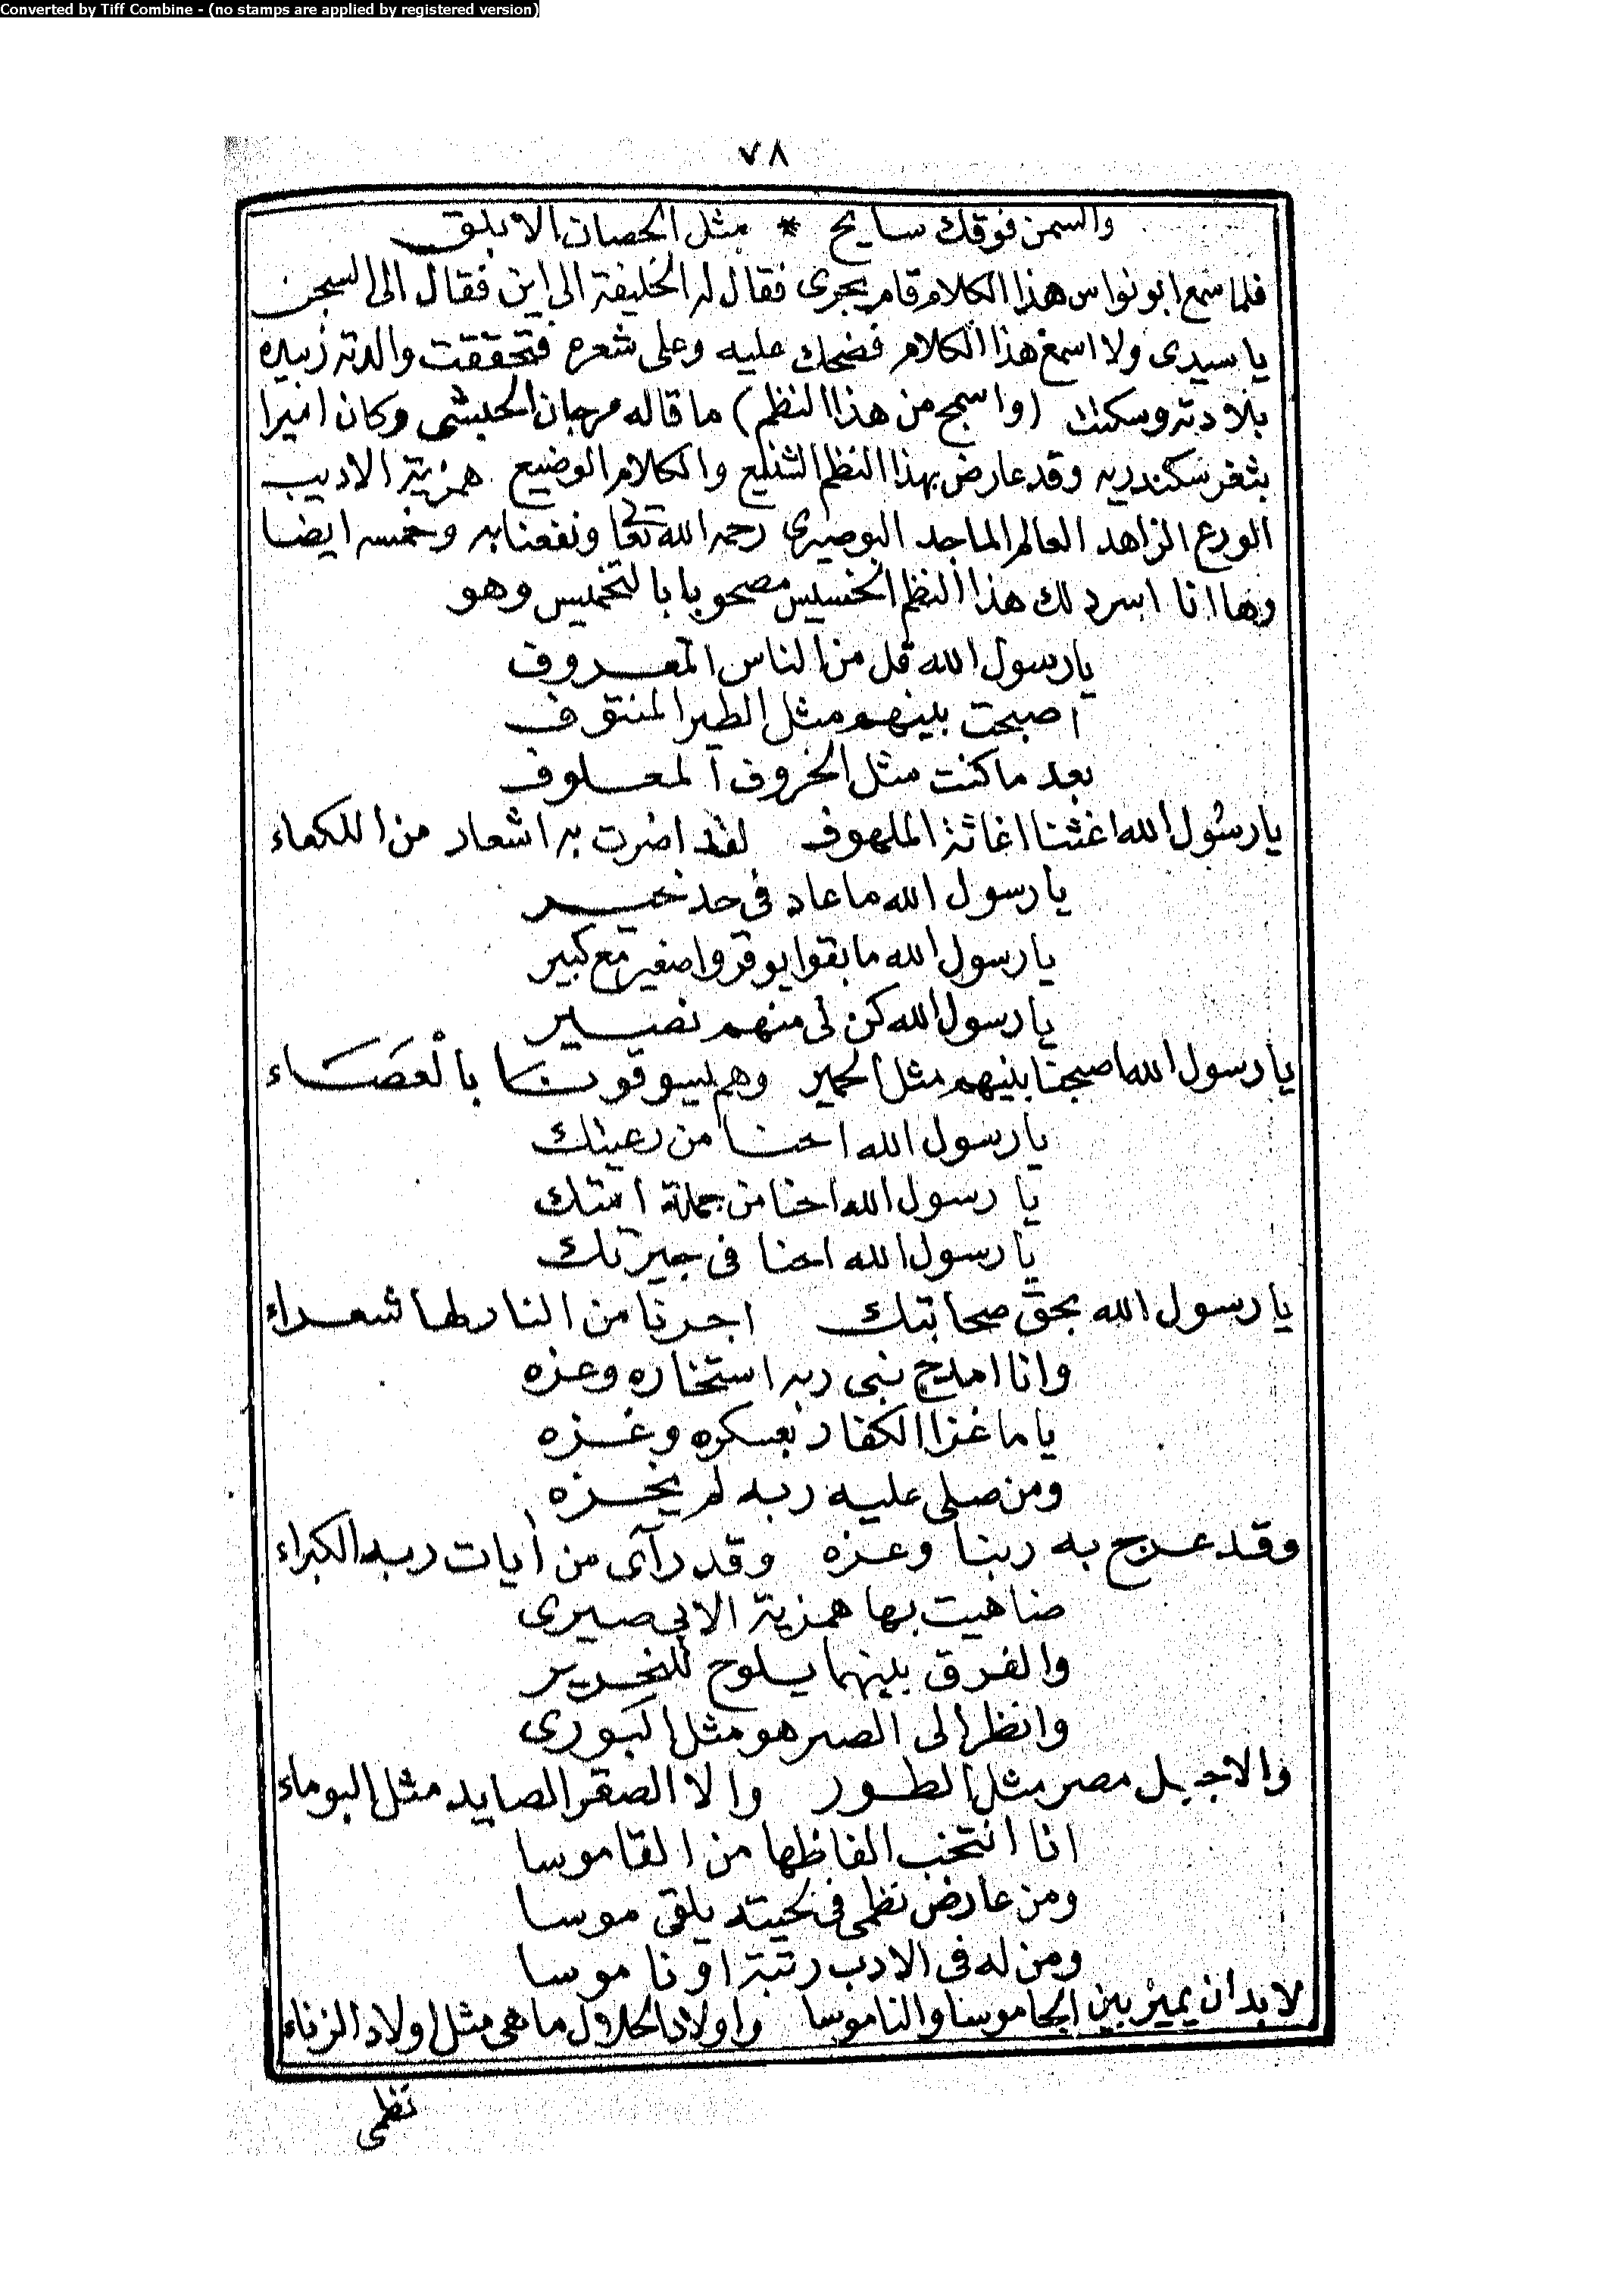 Converted by Tiff Combine - (no stamps are applied by registered version)
٧٨
والسمن فوقك سايح * مثل الحصان الابلق
فلما سمع ابو نواس هذا الكلام قام يجرى فقال له الخليفة الى اين فقال الى السجن
ياسيدى ولا اسمع هذا الكلام فضحك عليه وعلى شعره فتحققت والدته زبيده
بلادته وسكتت (واسمج من هذا النظم) ما قاله مرجان الحبشى وكان اميرا
بثغر سكندريه وقد عارض بهذا النظم الشنيع والكلام الوضيع همزية الاديب
الورع الزاهد العالم الماجد البوصيرى رحمه الله تعا ونفعنا به وخمسه ايضا
وها انا اسرد لك هذا النظم الخسيس مصحوبا بالتخميس وهو
يارسول الله قل من الناس المعروف
اصبحت بينهم مثل الطير المنتوف
بعد ماكنت مثل الخروف المعلوف
يارسول الله اغثنا اغاثة الملهوف لقد اضرت به اشعار من اللكماء
يارسول الله ما عاد فى حد خير
يارسول الله ما بقوا يوقروا صغير مع كبير
يارسول الله كن لى منهم نصير
يارسول الله اصبحنا بينهم مثل الحمير وهم يسوقونا بالْعَصَاء
يارسول الله احنا من رعيتك
يا رسول الله احنا من جملة امتك
يا رسول الله احنا فى جيرتك
يا رسول الله بحق صحابتك اجرنا من النار لها شعراء
وانا امدح نبى ربه استخاره وعزه
ياما غزا الكفار بعسكره وغزه
ومن صلى عليه ربه لم يخزه
وقد عرج به ربنا وعزه وقد رآى من أيات ربه الكبراء
ضاهيت بها همزية الابى صيرى
والفرق بينهما يلوح للنحرير
وانظر الى الصير هو مثل البورى
والا جبل مصر مثل الطور والا الصقر الصايد مثل البوماء
انا انتخب الفاظها من القاموسا
ومن عارض نظمى فى لحيته يلقى موسا
ومن له فى الادب رتبة او ناموسا
لابد ان يميز بين الجاموسا والناموسا واولاد الحلال ما هى مثل اولاد الزناء
نظمى